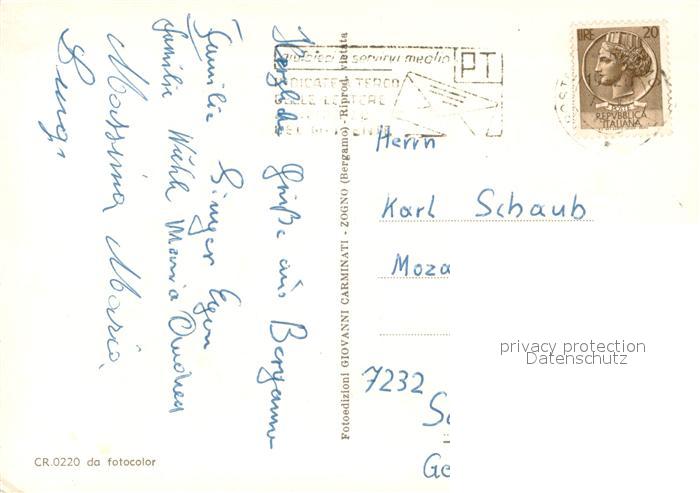 Herzliche Grüße aus Bergamo
Familie Singer Egon
Familie Maria Andrea
Massima Maria,
Luigi
CR.0220 da fotocolor
Fotoedizioni GIOVANNI CARMINATI - ZOGNO (Bergamo) - Riprod. vietata
aiutateci a servirvi meglio
PT
INDICATE A TERGO
DELLE LETTERE
LIRE 20
POSTE
REPVBBLICA
ITALIANA
Herrn
Karl Schaub
Moza
7232
Ge
privacy protection
Datenschutz